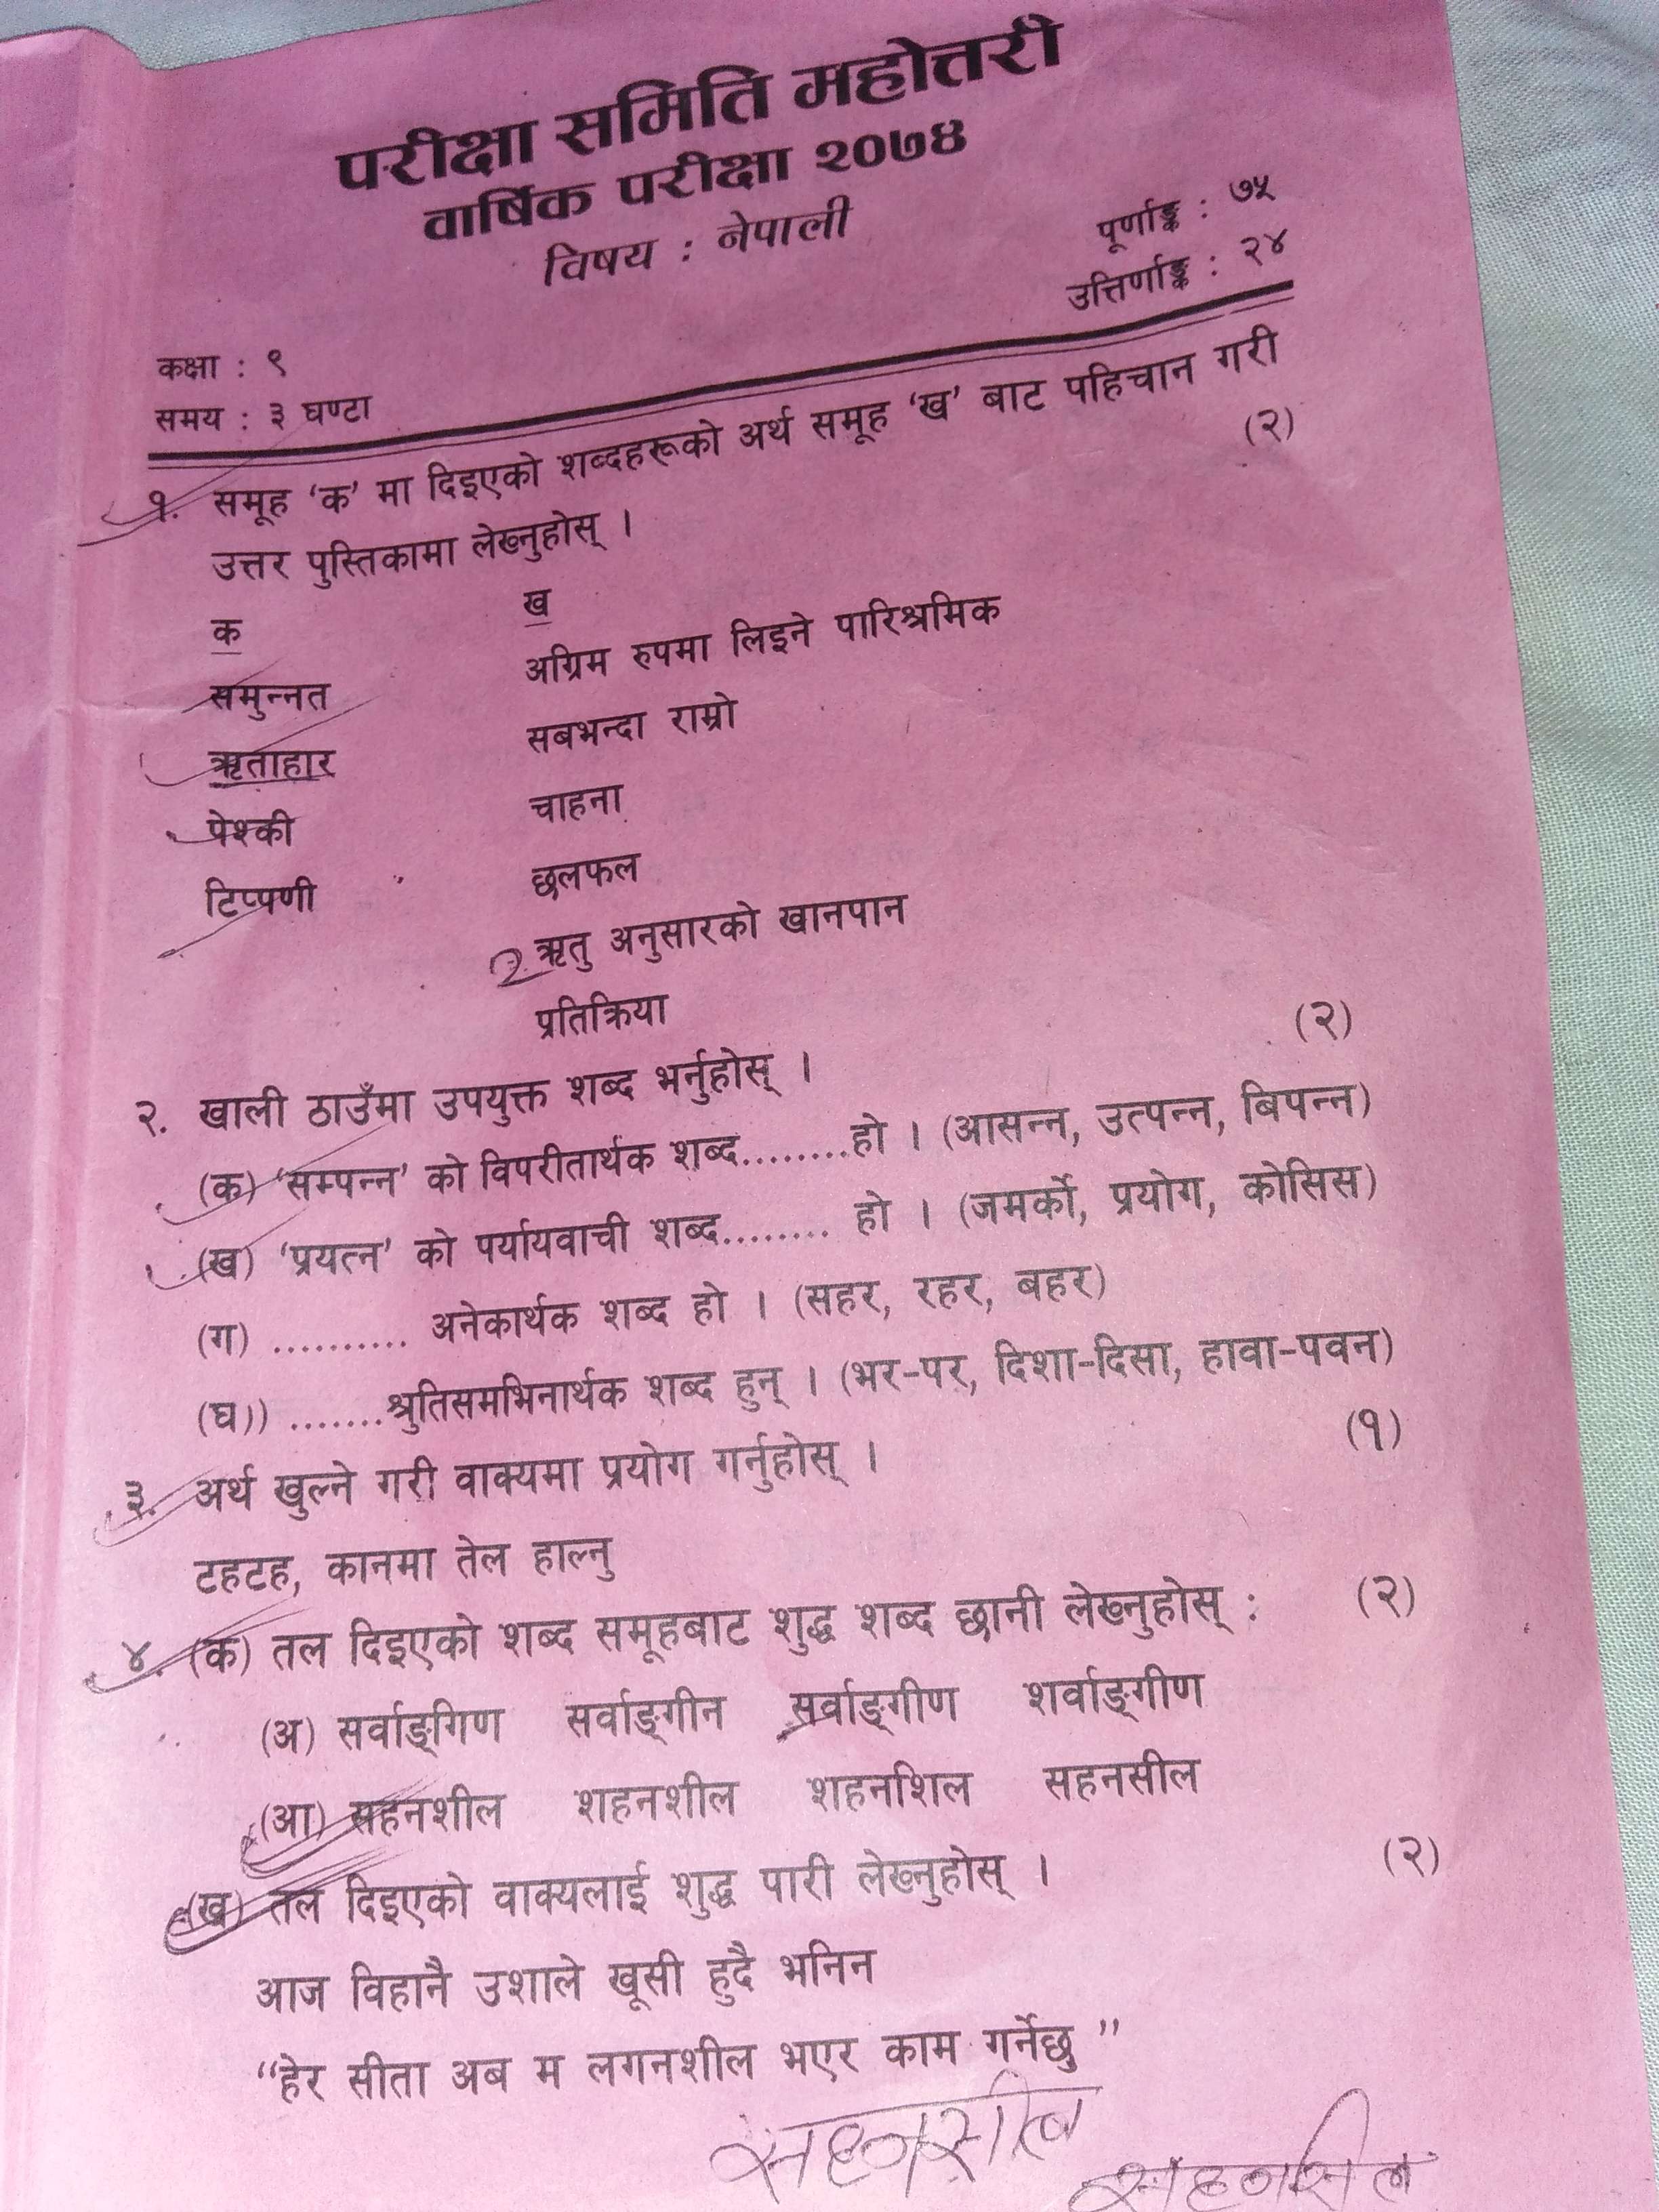 परीक्षा समिति महोत्तरी
वार्षिक परीक्षा २०७४
विषय : नेपाली
पूर्णाङ्क : ७५
उत्तिर्णाङ्क : २४
कक्षा : ९
समय : ३ घण्टा
१. समूह ‘क’ मा दिइएको शब्दहरूको अर्थ समूह ‘ख’ बाट पहिचान गरी
उत्तर पुस्तिकामा लेख्नुहोस् । (२)
क ख
समुन्नत अग्रिम रुपमा लिइने पारिश्रमिक
ऋताहार सबभन्दा राम्रो
पेश्की चाहना
टिप्पणी छलफल
2 ऋतु अनुसारको खानपान
प्रतिक्रिया
२. खाली ठाउँमा उपयुक्त शब्द भर्नुहोस् । (२)
(क) ‘सम्पन्न’ को विपरीतार्थक शब्द........हो । (आसन्न, उत्पन्न, बिपन्न)
(ख) ‘प्रयत्न’ को पर्यायवाची शब्द........ हो । (जमर्को, प्रयोग, कोसिस)
(ग) .......... अनेकार्थक शब्द हो । (सहर, रहर, बहर)
(घ)) .......श्रुतिसमभिनार्थक शब्द हुन् । (भर-पर, दिशा-दिसा, हावा-पवन)
३. अर्थ खुल्ने गरी वाक्यमा प्रयोग गर्नुहोस् । (१)
टहटह, कानमा तेल हाल्नु
४. (क) तल दिइएको शब्द समूहबाट शुद्ध शब्द छानी लेख्नुहोस् : (२)
(अ) सर्वाङ्गिण सर्वाङ्गीन सर्वाङ्गीण शर्वाङ्गीण
(आ) सहनशील शहनशील शहनशिल सहनसील
(ख) तल दिइएको वाक्यलाई शुद्ध पारी लेख्नुहोस् । (२)
आज विहानै उशाले खूसी हुदै भनिन
“हेर सीता अब म लगनशील भएर काम गर्नेछु ”
सहनसील
सहनसिल